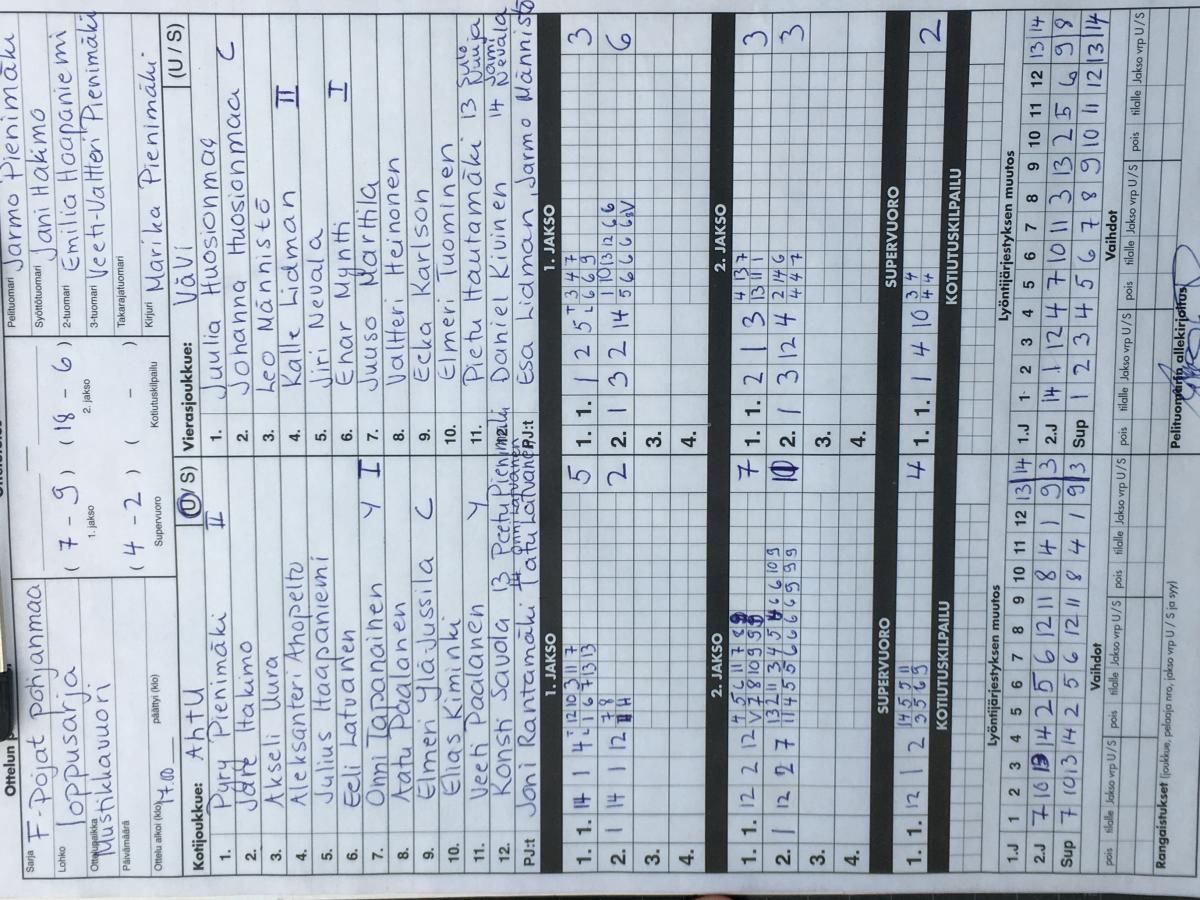 Ottelun
Sarja F-Pojat pohjanmaa
Lohko loppusarja
Ottelupaikka Mustikkavuori
Päivämäärä
Ottelu alkoi (klo) 17.00 päättyi (klo)
( 7 - 9 ) ( 18 - 6 )
1. jakso 2. jakso
( 4 - 2 ) ( - )
Supervuoro Kotiutuskilpailu
Pelituomari Jarmo Pienimäki
Syöttötuomari Jani Hakimo
2-tuomari Emilia Haapaniemi
3-tuomari Veeti-Valtteri Pienimäki
Takarajatuomari
Kirjuri Marika Pienimäki
Kotijoukkue: AhtU (U/S)
1. Pyry Pienimäki II
2. Jare Hakimo
3. Akseli Uura
4. Aleksanteri Ahopelto
5. Julius Haapaniemi
6. Eeli Latvanen
7. Onni Tapanainen Y I
8. Aatu Paalanen
9. Elmeri Yläjussila C
10. Elias Kiminki
11. Veeti Paalanen Y
12. Konsti Savola 13 Peetu Pienimäki
PJ:t Joni Rantamäki Tatu Latvanen
Vierasjoukkue: VäVi (U / S)
1. Juulia Huosionmaa
2. Johanna Huosionmaa C
3. Leo Männistö
4. Kalle Lidman II
5. Jiri Nevala
6. Einar Mynti I
7. Juuso Marttila
8. Valtteri Heinonen
9. Eeka Karlson
10. Elmeri Tuominen
11. Pietu Hautamäki 13
12. Daniel Kivinen 14 Jami Nevala
PJ:t Esa Lidman, Jarmo Männistö
1. JAKSO 1. JAKSO
1. 1. 14 1 4 5
1. 1. 1 2 5 3
2. 1 14 1 12 2
2. 1 3 2 14 6
3. 3.
4. 4.
2. JAKSO 2. JAKSO
1. 1. 12 2 12 7
1. 1. 2 1 3 3
2. 1 12 2 7
2. 1 3 12 4 3
3. 3.
4. 4.
SUPERVUORO SUPERVUORO
1. 1. 12 1 2 4
1. 1. 1 4 10 2
KOTIUTUSKILPAILU KOTIUTUSKILPAILU
Lyöntijärjestyksen muutos
1.J 1 2 3 4 5 6 7 8 9 10 11 12 13 14
2.J 7 10 13 14 2 5 6 12 11 8 4 1 9 3
Sup 7 10 13 14 2 5 6 12 11 8 4 1 9 3
Vaihdot
pois tilalle Jakso vrp U/S pois tilalle Jakso vrp U/S pois tilalle Jakso vrp U/S
Lyöntijärjestyksen muutos
1.J 1 2 3 4 5 6 7 8 9 10 11 12 13 14
2.J 14 1 12 4 7 10 11 3 13 2 5 6 9 8
Sup 1 2 3 4 5 6 7 8 9 10 11 12 13 14
Vaihdot
pois tilalle Jakso vrp U/S pois tilalle Jakso vrp U/S pois tilalle Jakso vrp U/S
Rangaistukset (joukkue, pelaaja nro, jakso vrp U / S ja syy)
Pelituomarin allekirjoitus